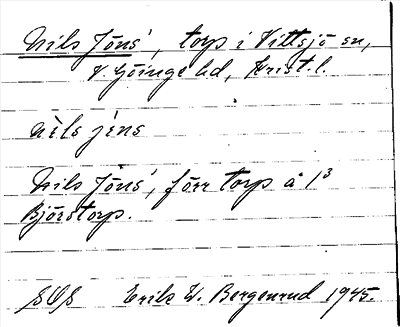 Nils Jöns', torp i Vittsjö sn,
V. Göinge hd, Krist. l.
nils jens
Nils Jöns', förr torp å 1³
Björstorp.
SOS Erik W. Bergenrud 1945.